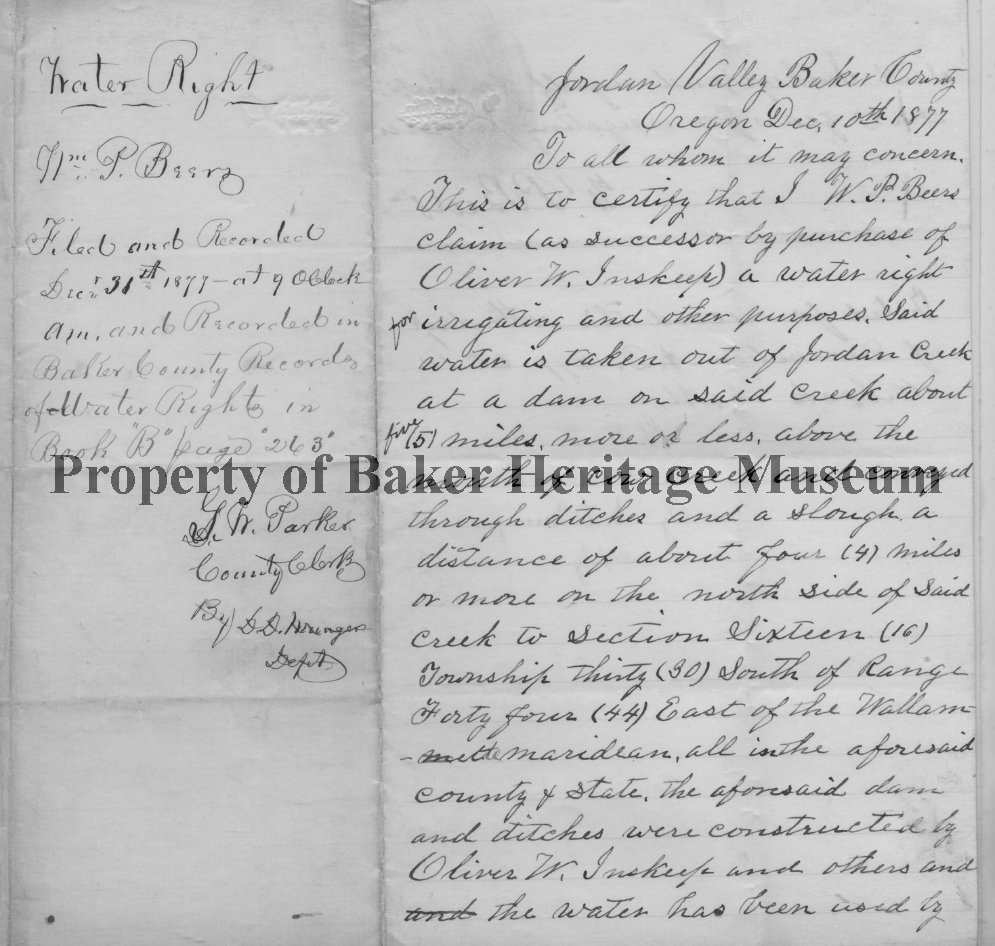 Water Right
Wm. P. Beers
Filed and Recorded
Decr. 31st 1877 – at 9 OClock
am, and Recorded in
Baker County Records
of Water Rights in
Book "B" page "263"
G. W. Parker
County Clerk
By D. D.
Dept
Jordan Valley Baker County
Oregon Dec. 10th 1877
To all whom it may concern.
This is to certify that I W. P. Beers
claim (as successor by purchase of
Oliver W. Inskeep) a water right
for irregating and other purposes. Said
water is taken out of Jordan Creek
at a dam on said creek about
five (5) miles, more or less, above the
mouth of cow creek and convayed
through ditches and a slough a
distance of about four (4) miles
or more on the north side of said
creek to Section Sixteen (16)
Township thirty (30) South of Range
Forty four (44) East of the Wallam-
-mette maridean, all in the aforesaid
county & state. the aforesaid dam
and ditches were constructed by
Oliver W. Inskeep and others and
and the water has been used by
Property of Baker Heritage Museum